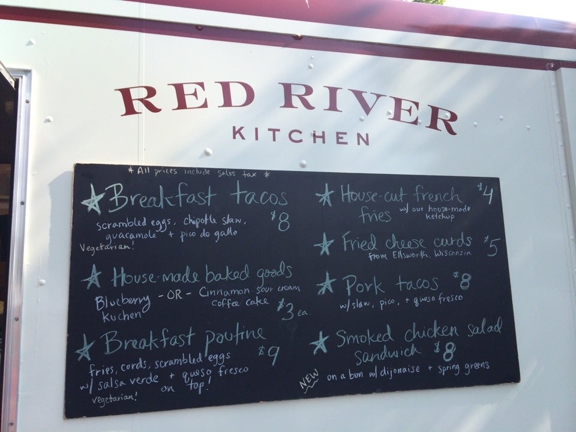 RED RIVER
KITCHEN
* All prices include sales tax *
Breakfast tacos
scrambled eggs, chipotle slaw,
guacamole + pico do gallo
$8
Vegetarian!
House-made baked goods
Blueberry - OR - Cinnamon sour cream
kuchen coffee cake $3 ea.
Breakfast poutine
fries, curds, scrambled eggs
$9
w/ salsa verde + queso fresco
on top!
Vegetarian!
House-cut french $4
fries w/ our house-made
ketchup
Fried cheese curds $5
from Ellsworth, Wisconsin
Pork tacos $8
w/ slaw, pico, + queso fresco
Smoked chicken salad
sandwich $8
NEW on a bun w/ dijonaise + spring greens